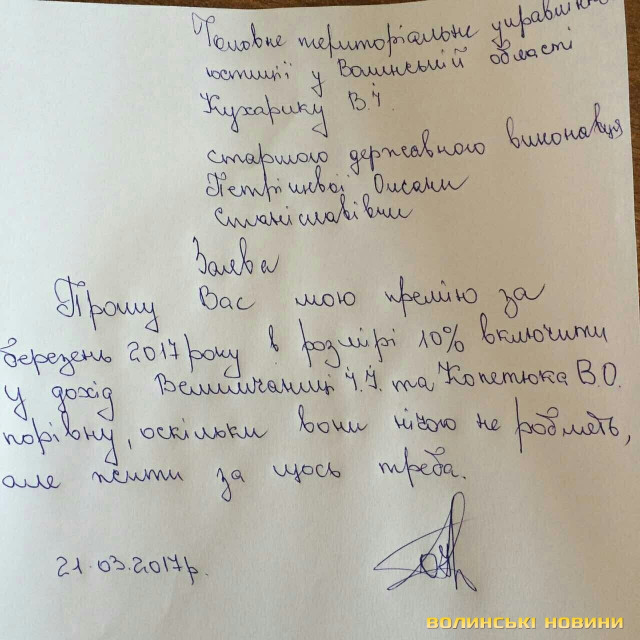 Головне територіальне управління
юстиції у Волинській області
Кухарику В.Й.
старшого державного виконавця
Петрикевої Оксани
Станіславівни
Заява
Прошу Вас мою премію за
березень 2017 року в розмірі 10% включити
у дохід Величаниці Й.Й. та Копетюка В.О.
порівну, оскільки вони нічого не роблять,
але жити за щось треба.
21.03.2017р.
ВОЛИНСЬКІ НОВИНИ